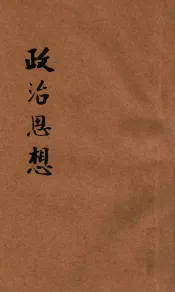 政治思想